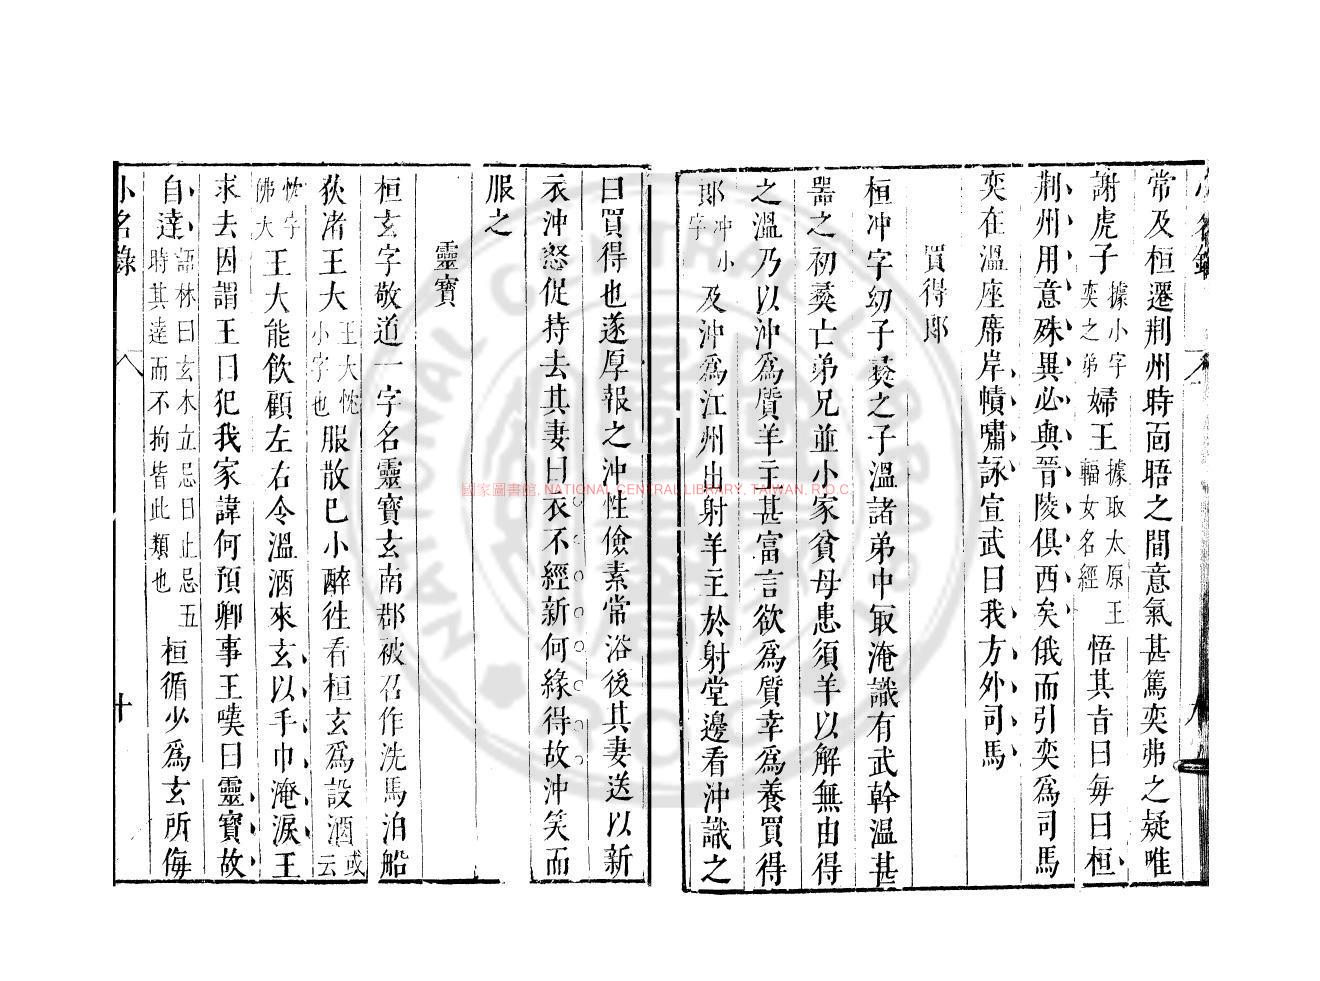 常及桓遷荆州時面晤之間意氣甚篤奕弗之疑唯
謝虎子據小字奕之弟婦王據取太原王輻女名經悟其旨曰每曰桓
荆州用意殊異必與晉陵俱西矣俄而引奕爲司馬
奕在溫座席岸幘嘯詠宣武曰我方外司馬
買得郎
桓冲字幼子彝之子溫諸弟中冣淹識有武幹溫甚
器之初彝亡弟兄並小家貧母患須羊以解無由得
之溫乃以沖爲質羊主甚富言欲爲質幸爲養買得
郎冲小字及沖爲江州出射羊主於射堂邊看沖識之
曰買得也遂厚報之沖性儉素常浴後其妻送以新
衣沖怒促持去其妻曰衣不經新何緣得故沖笑而
服之
靈寶
桓玄字敬道一字名靈寶玄南郡被召作洗馬泊船
荻渚王大王大忱小字也服散已小醉往看桓玄爲設酒或云
忱字佛大王大能飲顧左右令溫酒來玄以手巾淹淚王
求去因謂王曰犯我家諱何預卿事王嘆曰靈寶故
自達語林曰玄木立忌日止忌五時其達而不拘皆此類也桓循少爲玄所侮
小名錄
十
國家圖書館, NATIONAL CENTRAL LIBRARY, TAIWAN, R.O.C